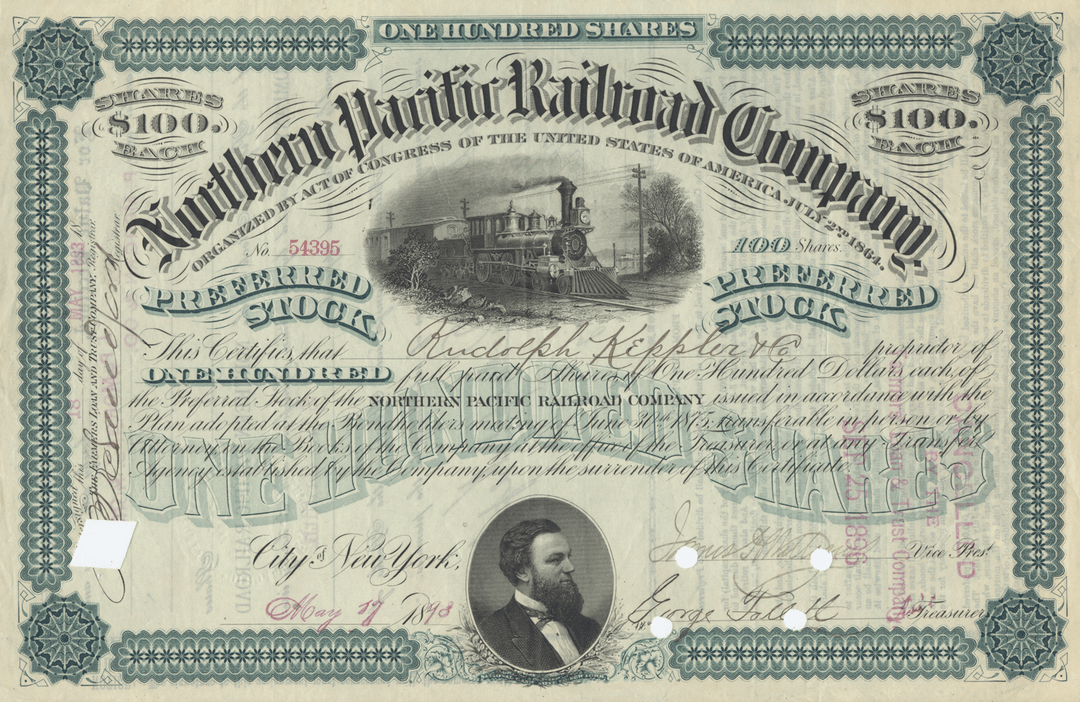 ONE HUNDRED SHARES
SHARES
$100.
EACH
SHARES
$100.
EACH
Northern Pacific Railroad Company,
ORGANIZED BY ACT OF CONGRESS OF THE UNITED STATES OF AMERICA, JULY 2ND 1864.
No. 54395
100 Shares.
PREFERRED
STOCK
PREFERRED
STOCK
This Certifies, that Rudolph Keppler & Co proprietor of
ONE HUNDRED full paid Shares of One Hundred Dollars each of
the Preferred Stock of the NORTHERN PACIFIC RAILROAD COMPANY issued in accordance with the
Plan adopted at the Bondholders meeting of June 30th 1875, transferable in person or by
Attorney, on the Books of the Company at the office of the Treasurer, or at any Transfer
Agency established by the Company, upon the surrender of this Certificate.
ONE HUNDRED SHARES
City of New York,
May 17 1893
Vice Prest
George
Treasurer
signed this 18 day of MAY 1893
THE FARMERS LOAN AND TRUST COMPANY,
Registrar
CANCELLED
BY THE
Farmers Loan & Trust Company
SEP 25 1896